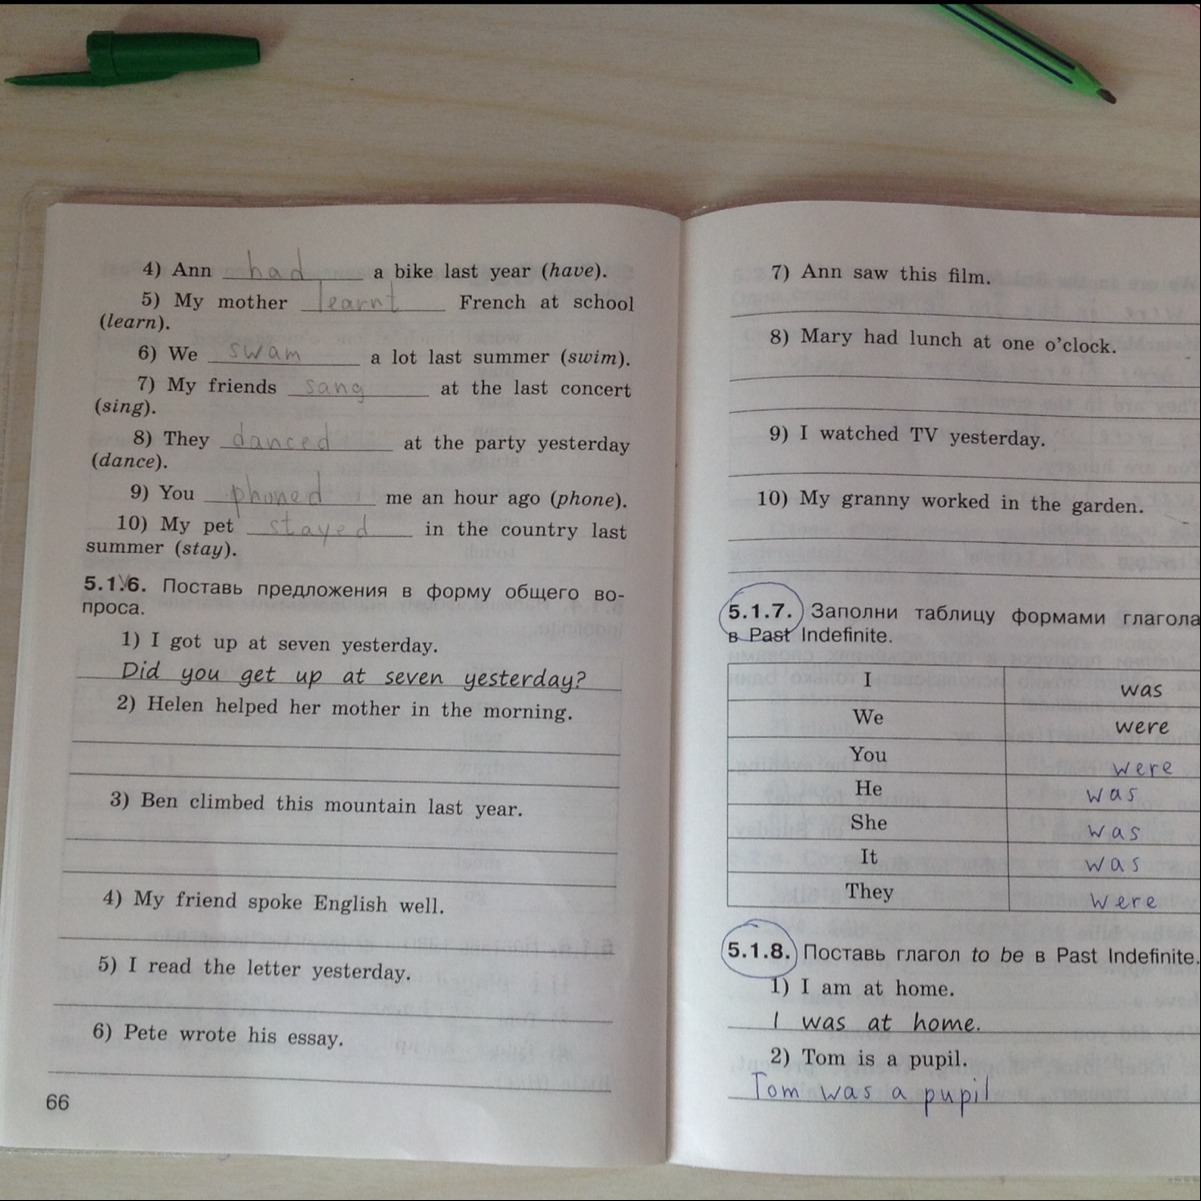 4) Ann had a bike last year (have).
5) My mother learnt French at school
(learn).
6) We swam a lot last summer (swim).
7) My friends sang at the last concert
(sing).
8) They danced at the party yesterday
(dance).
9) You phoned me an hour ago (phone).
10) My pet stayed in the country last
summer (stay).
5.1.6. Поставь предложения в форму общего во-
проса.
1) I got up at seven yesterday.
Did you get up at seven yesterday?
2) Helen helped her mother in the morning.
3) Ben climbed this mountain last year.
4) My friend spoke English well.
5) I read the letter yesterday.
6) Pete wrote his essay.
66
7) Ann saw this film.
8) Mary had lunch at one o'clock.
9) I watched TV yesterday.
10) My granny worked in the garden.
5.1.7. Заполни таблицу формами глагола
в Past Indefinite.
I was
We were
You were
He was
She was
It was
They were
5.1.8. Поставь глагол to be в Past Indefinite.
1) I am at home.
I was at home.
2) Tom is a pupil.
Tom was a pupil